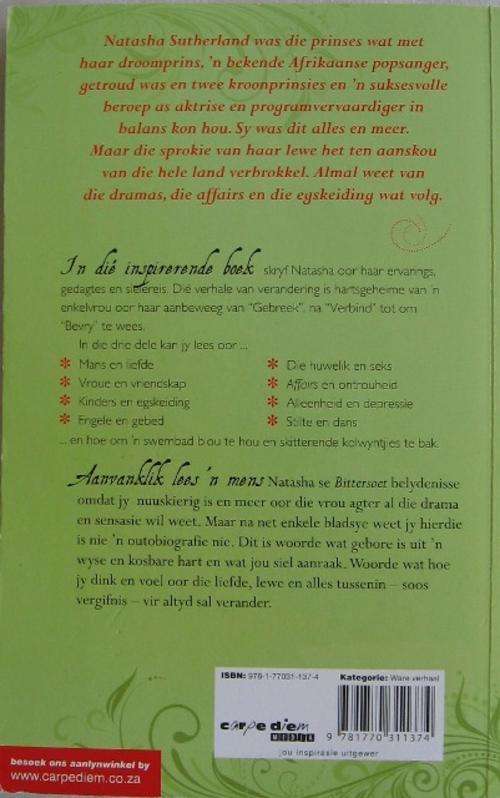 Natasha Sutherland was die prinses wat met
haar droomprins, 'n bekende Afrikaanse popsanger,
getroud was en twee kroonprinsies en 'n suksesvolle
beroep as aktrise en programvervaardiger in
balans kon hou. Sy was dit alles en meer.
Maar die sprokie van haar lewe het ten aanskou
van die hele land verbrokkel. Almal weet van
die dramas, die affairs en die egskeiding wat volg.
In dié inspirerende boek skryf Natasha oor haar ervarings,
gedagtes en sielereis. Dié verhale van verandering is hartsgeheime van 'n
enkelvrou oor haar aanbeweeg van "Gebreek", na "Verbind" tot om
"Bevry" te wees.
In die drie dele kan jy lees oor ...
* Mans en liefde
* Vroue en vriendskap
* Kinders en egskeiding
* Engele en gebed
* Die huwelik en seks
* Affairs en ontrouheid
* Alleenheid en depressie
* Stilte en dans
... en hoe om 'n swembad blou te hou en skitterende kolwyntjies te bak.
Aanvanklik lees 'n mens Natasha se Bittersoet belydenisse
omdat jy nuuskierig is en meer oor die vrou agter al die drama
en sensasie wil weet. Maar na net enkele bladsye weet jy hierdie
is nie 'n outobiografie nie. Dit is woorde wat gebore is uit 'n
wyse en kosbare hart en wat jou siel aanraak. Woorde wat hoe
jy dink en voel oor die liefde, lewe en alles tussenin – soos
vergifnis – vir altyd sal verander.
ISBN: 978-1-77031-137-4 Kategorie: Ware verhaal
carpe diem
MEDIA
9 781770 311374
jou inspirasie uitgewer
besoek ons aanlynwinkel by
www.carpediem.co.za